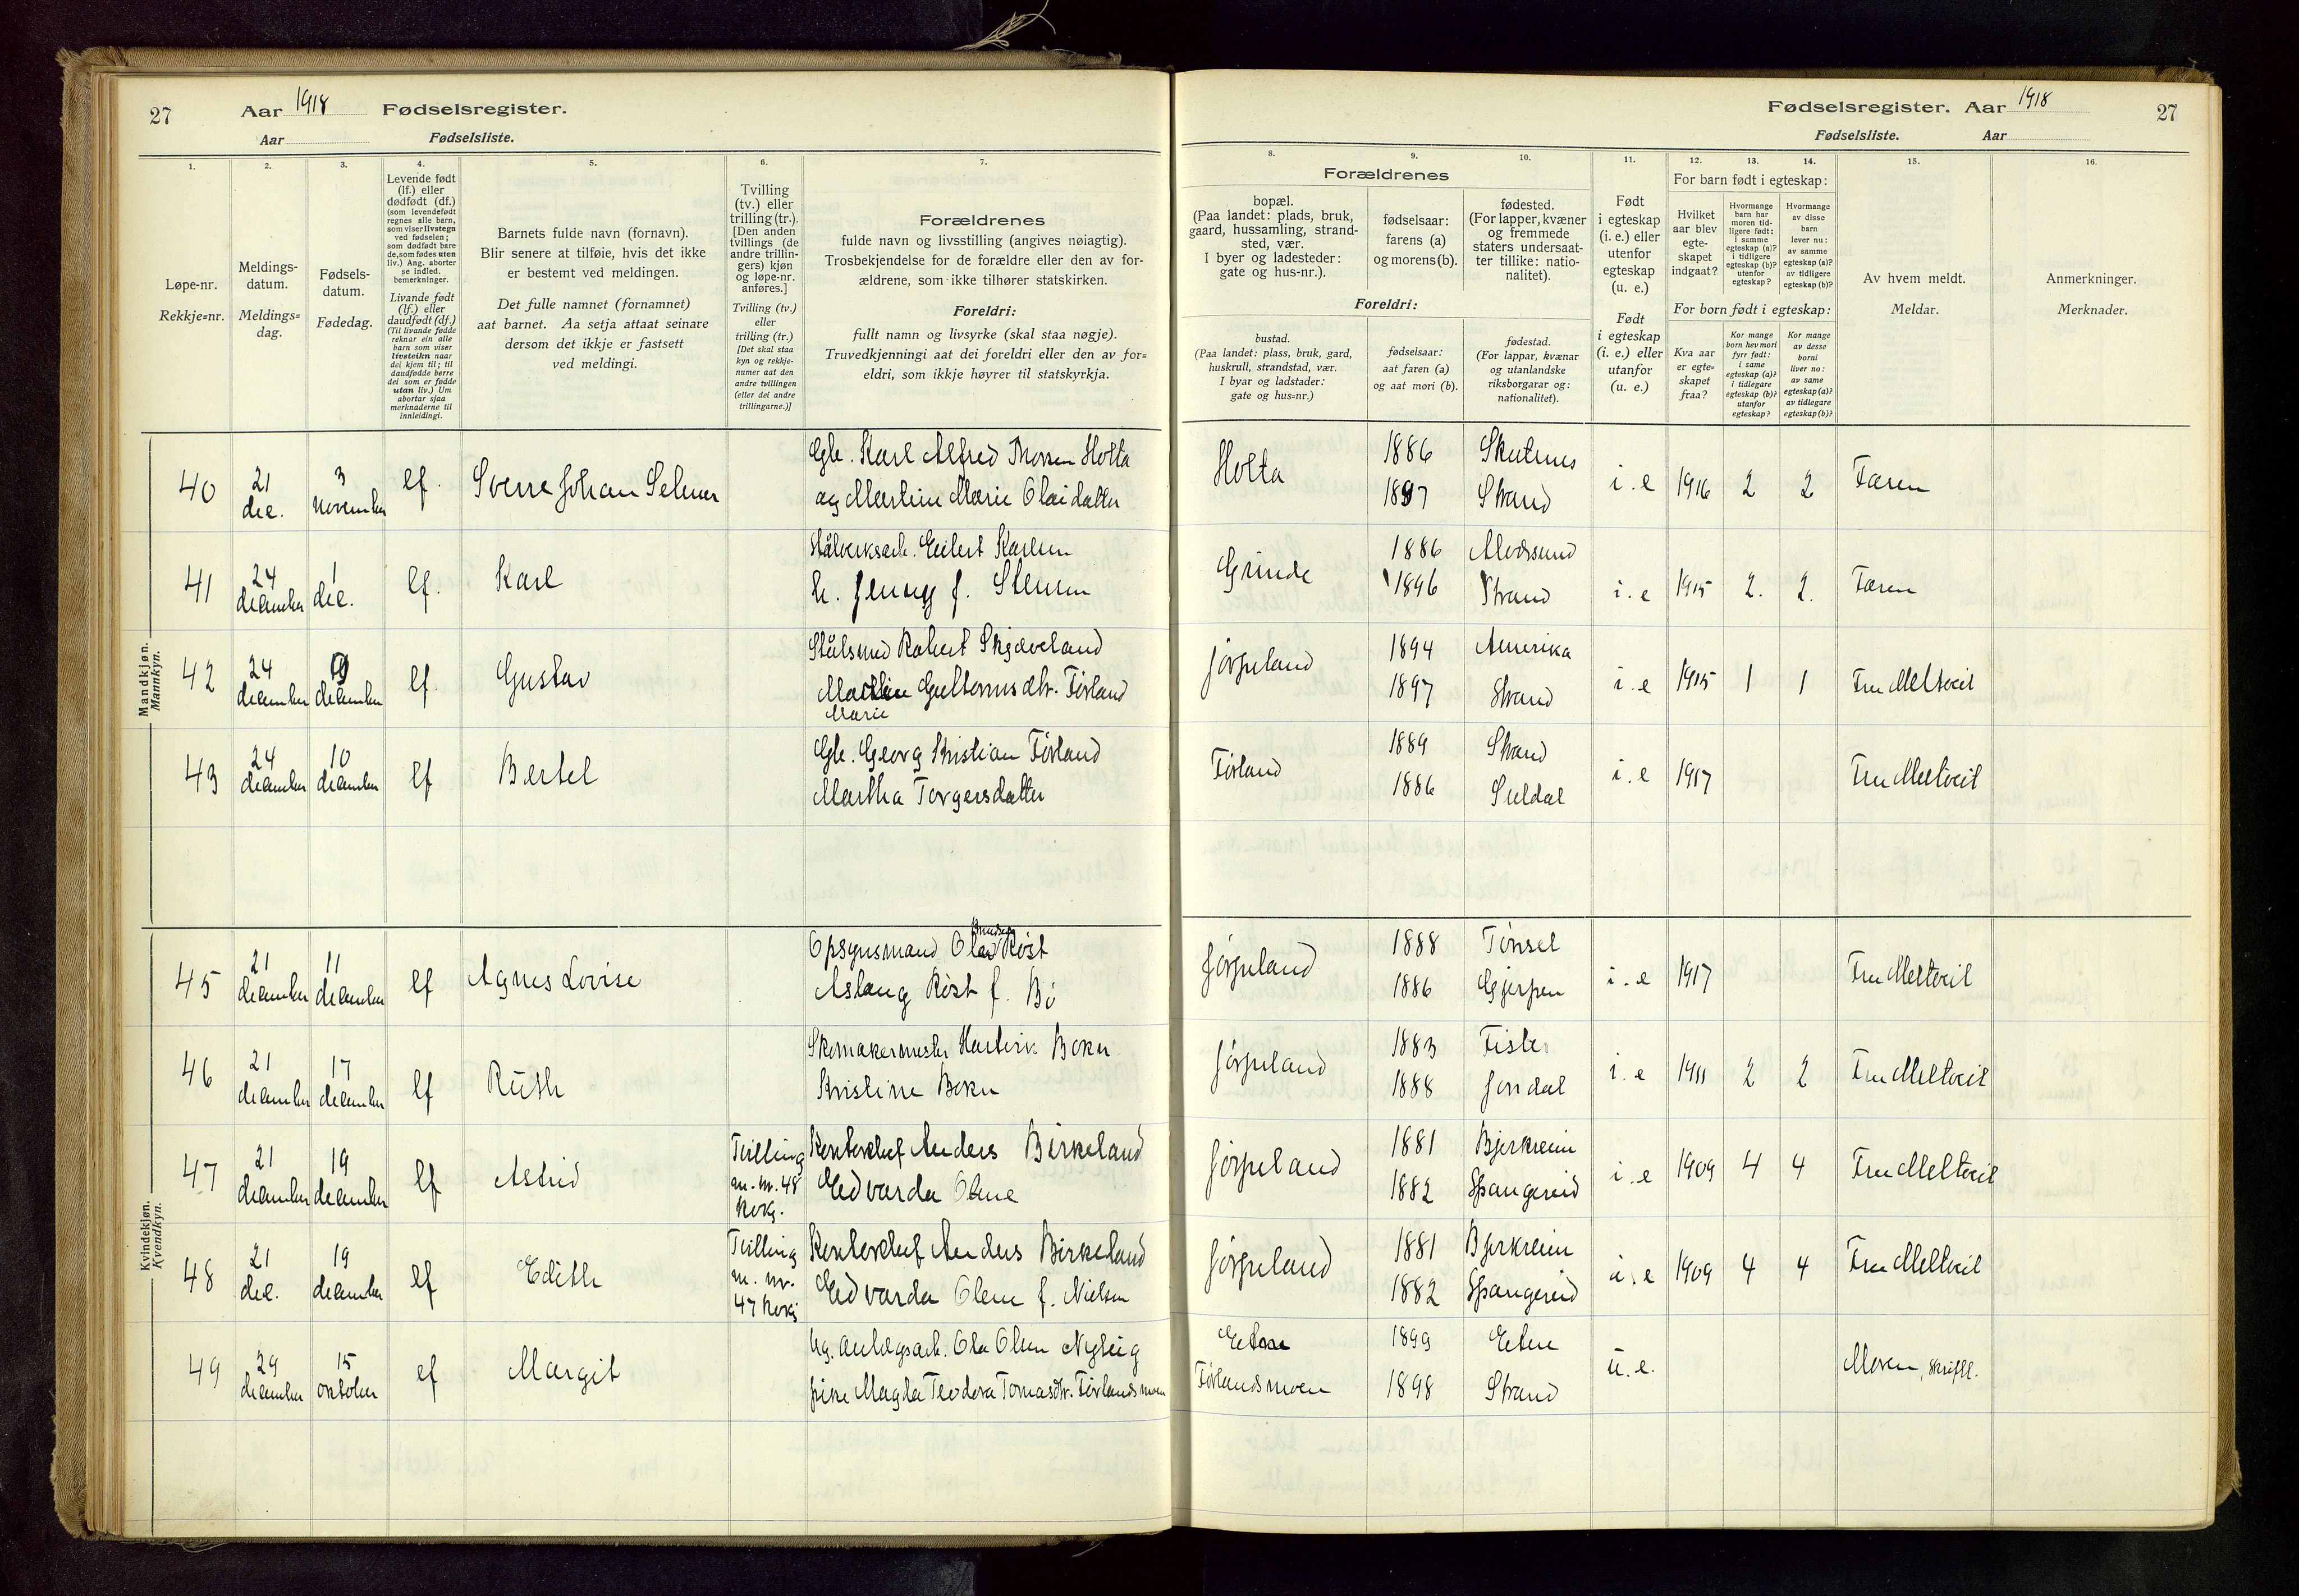 27 Aar 1918 Fødselsregister.
Aar Fødselsliste.
1. 2. 3. 4. 5. 6. 7.
Løpe-nr.
Rekkje=nr.
Meldings-
datum.
Meldings=
dag.
Fødsels-
datum.
Fødedag.
Levende født
(lf.) eller
dødfødt (df.)
(som levendefødt
regnes alle barn,
som viser livstegn
ved fødselen;
som dødfødt bare
de, som fødes uten
liv.) Ang. aborter
se indled.
bemerkninger.
Livande født
(lf.) eller
daudfødt (df.)
(Til livande fødde
reknar ein alle
barn som viser
livsteikn naar
dei kjem til; til
daudfødde berre
dei som er fødde
utan liv.) Um
abortar sjaa
merknaderne til
innleidingi.
Barnets fulde navn (fornavn).
Blir senere at tilføie, hvis det ikke
er bestemt ved meldingen.
Det fulle namnet (fornamnet)
aat barnet. Aa setja attaat seinare
dersom det ikkje er fastsett
ved meldingi.
Tvilling
(tv.) eller
trilling (tr.).
[Den anden
tvillings (de
andre trillin-
gers) kjøn
og løpe-nr.
anføres.]
Tvilling (tv.)
eller
trilling (tr.)
[Det skal staa
kyn og rekkje-
numer aat den
andre tvillingen
(eller dei andre
trillingarne.)]
Forældrenes
fulde navn og livsstilling (angives nøiagtig).
Trosbekjendelse for de forældre eller den av for-
ældrene, som ikke tilhører statskirken.
Foreldri:
fullt namn og livsyrke (skal staa nøgje).
Truvedkjenningi aat dei foreldri eller den av for=
eldri, som ikkje høyrer til statskyrkja.
Mandkjøn.
Mannkyn.
40 21 dec. 3 november lf. Sverre Johan Selmer
Gbr. Karl Alfred Thorsen Holta
og Martine Marie Olaidatter
41 24 december 1 dec. lf. Karl
Stålverksarb. Eilert Karlsen
h. Jenny f. Stensen
42 24 december december lf. Gustav
Stålsmed Robert Skjæveland
Guttormsdtr. Førland
Marie
43 24 december 10 december lf Bertel
Gbr. Georg Kristian Førland
Martha Torgersdatter
Kvindekjøn.
Kvendkyn.
45 21 december 11 december lf Agnes Lovise
Knudsen
Opsynsmand Olav Røst
Aslaug Røst f. Bø
46 21 december 17 december lf Ruth
Skomakermester Boku
Kristine Boku
47 21 december 19 december lf Astrid
Tvilling
m. nr. 48
Kvkj.
Kontorchef Anders Birkeland
Edvarda Olene
48 21 dec. 19 december lf Edith
Tvilling
m. nr.
47 Kvkj
Kontorchef Anders Birkeland
Edvarda Olene f. Nielsen
49 29 december 15 oktober lf Margit
Ug. anlægsarb. Ola Olsen
pike Magda Teodora Tomasdtr. Førlandsmoen
Fødselsregister. Aar 1918 27
Fødselsliste. Aar
8. 9. 10. 11. 12. 13. 14. 15. 16.
Forældrenes
bopæl.
(Paa landet: plads, bruk,
gaard, hussamling, strand-
sted, vær.
I byer og ladesteder:
gate og hus-nr.).
fødselsaar:
farens (a)
og morens (b).
fødested.
(For lapper, kvæner
og fremmede
staters undersaat-
ter tillike: natio-
nalitet).
Foreldri:
bustad.
(Paa landet: plass, bruk, gard,
huskrull, strandstad, vær.
I byar og ladstader:
gate og hus=nr.)
fødselsaar:
aat faren (a)
og aat mori (b).
fødestad.
(For lappar, kvænar
og utanlandske
riksborgarar og:
nationalitet).
Født
i egteskap
(i. e.) eller
utenfor
egteskap
(u. e.)
Født
i egteskap
(i. e.) eller
utanfor
(u. e.)
For barn født i egteskap:
Hvilket
aar blev
egte-
skapet
indgaat?
Hvormange
barn har
moren tid-
ligere født:
i samme
egteskap (a)?
i tidligere
egteskap (b)?
utenfor
egteskap?
Hvormange
av disse
barn
lever nu:
av samme
egteskap (a)?
av tidligere
egteskap (b)?
For born født i egteskap:
Kva aar
er egte=
skapet
fraa?
Kor mange
born hev mori
fyrr født:
i same
egteskap (a)?
i tidlegare
egteskap (b)?
utanfor
egteskap?
Kor mange
av desse
borni
liver no:
av same
egteskap (a)?
av tidlegare
egteskap (b)?
Av hvem meldt.
Meldar.
Anmerkninger.
Merknader.
Holta 1886 Skutnes i. e 1916 2 2 Faren
1897 Strand
Grunde 1886 i. e 1915 2. 2. Faren
1896 Strand
Jørpeland 1894 Amerika i. e 1915 1 1 Fru Meltveit
1897 Strand
Førland 1889 Strand i. e 1917 Fru Meltveit
1886 Suldal
Jørpeland 1888 Tönsel i. e 1917 Fru Meltveit
1886 Gjerpen
Jørpeland 1883 Fister i. e 1911 2 2 Fru Meltveit
1888 Jondal
Jørpeland 1881 Bjerkreim i. e 1909 4 4 Fru Meltveit
1882 Spangereid
Jørpeland 1881 Bjerkreim i. e 1909 4 4 Fru Meltveit
1882 Spangereid
Etne 1899 Etne u. e. Moren, skriftl.
Førlandsmoen 1898 Strand